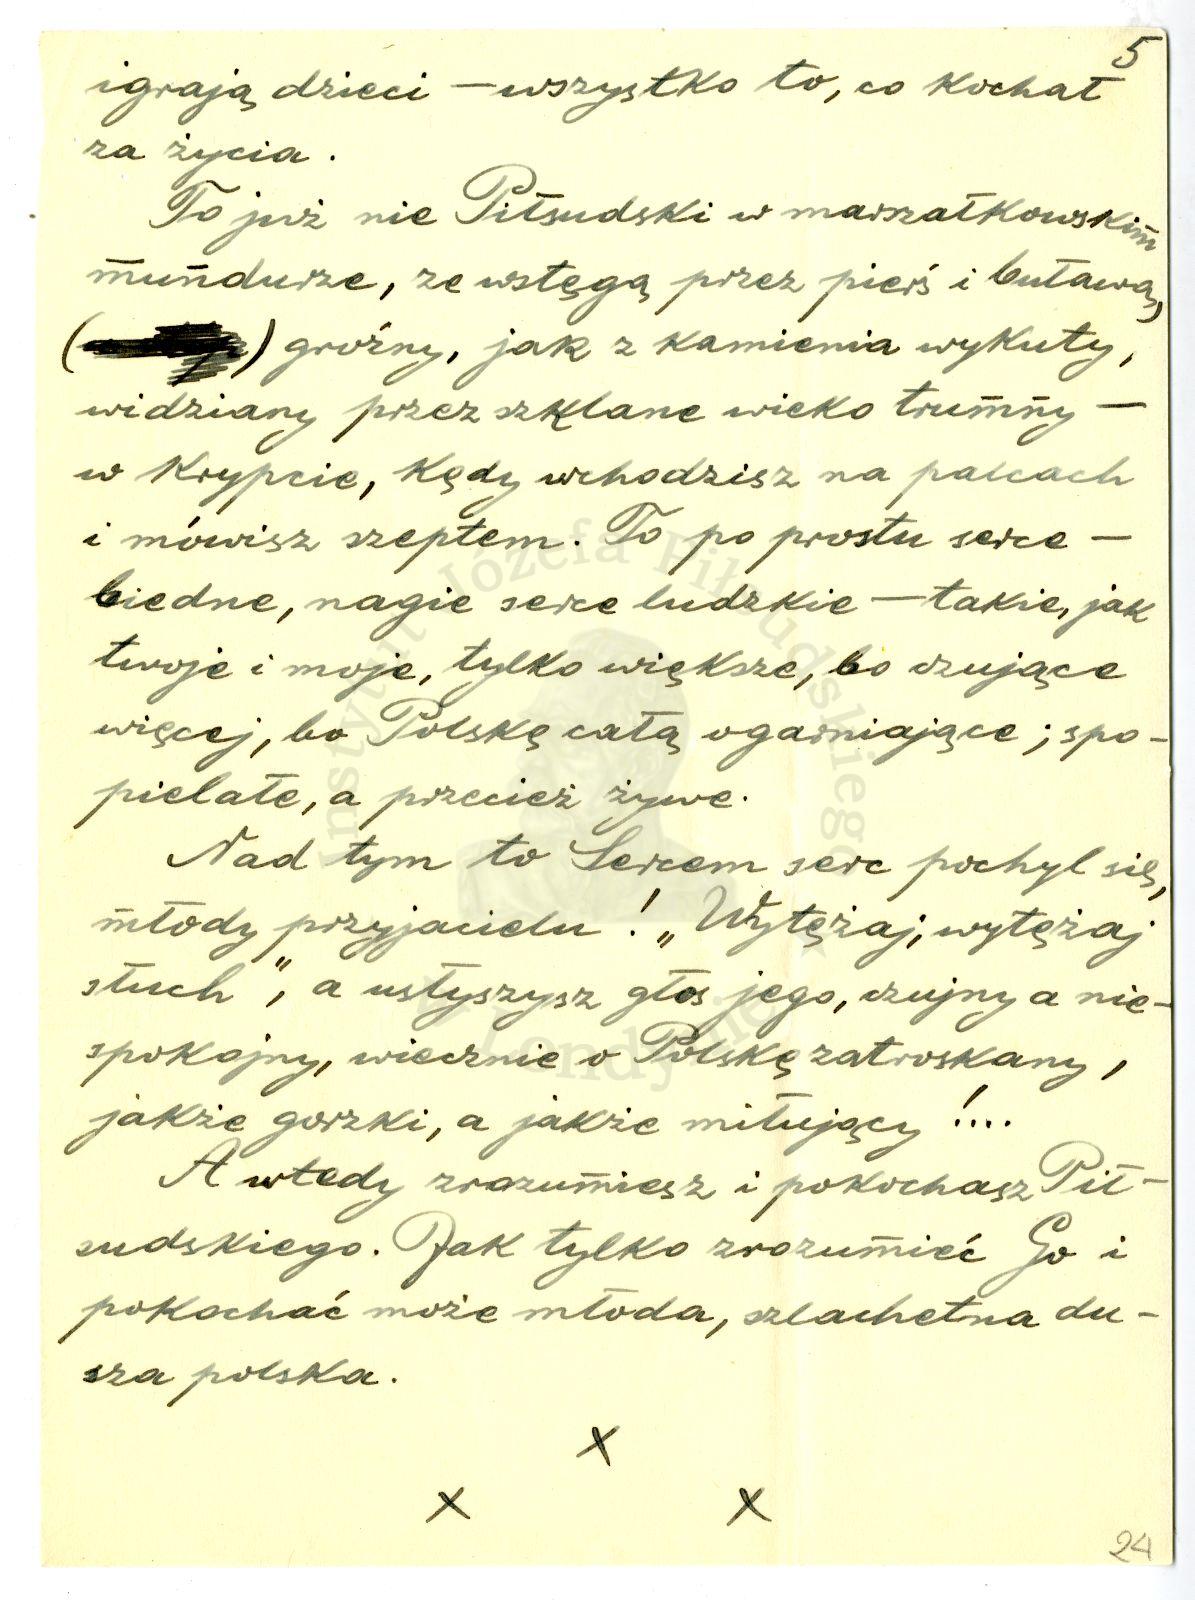 5
igrają dzieci — wszystko to, co kochał
za życia.
To już nie Piłsudski w marszałkowskim
mundurze, ze wstęgą przez pierś i buławą,
( ) groźny, jak z kamienia wykuty,
widziany przez szklane wieko trumny —
w krypcie, kędy wchodzisz na palcach
i mówisz szeptem. To po prostu serce —
biedne, nagie serce ludzkie — takie, jak
twoje i moje, tylko większe, bo czujące
więcej, bo Polskę całą ogarniające; spo-
pielałe, a przecież żywe.
Nad tym to Sercem serc pochyl się,
młody przyjacielu! „Wytężaj, wytężaj
słuch”, a usłyszysz głos jego, czujny a nie-
spokojny, wiecznie o Polskę zatroskany,
jakże gorzki, a jakże miłujący!...
A wtedy zrozumiesz i pokochasz Pił-
sudskiego. Jak tylko zrozumieć Go i
pokochać może młoda, szlachetna du-
sza polska.
x
x x
24
Instytut Józefa Piłsudskiego
w Londynie